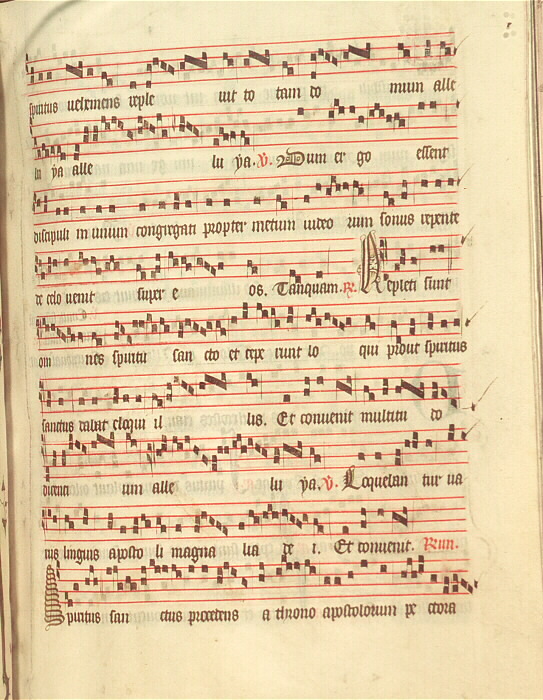 spiritus vehemens reple vit to tam do mum alle
lu ya alle lu ya. V. Dum er go essent
discipuli in unum congregati propter metum iudeo rum sonus repente
de celo venit super e os. Tanquam. R. Repleti sunt
om nes spiritu san cto et cepe runt lo qui prout spiritus
sanctus dabat eloqui il lis. Et convenit multitu do
dicenti um alle lu ya. V. Loqueban tur va
riis linguis aposto li magna lia de i. Et convenit.
Spiritus san ctus procedens a throno apostolorum pe ctora